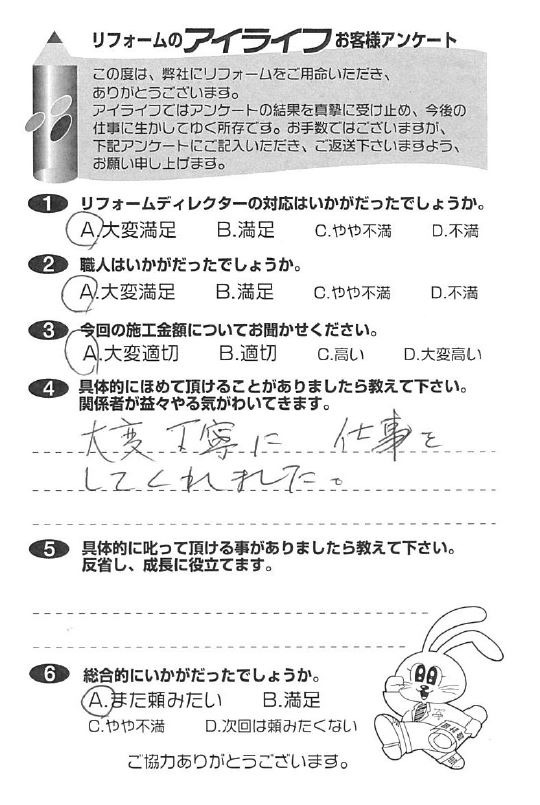 リフォームのアイライフお客様アンケート
この度は、弊社にリフォームをご用命いただき、
ありがとうございます。
アイライフではアンケートの結果を真摯に受け止め、今後の
仕事に生かしてゆく所存です。お手数ではございますが、
下記アンケートにご記入いただき、ご返送下さいますよう、
お願い申し上げます。
1 リフォームディレクターの対応はいかがだったでしょうか。
A.大変満足 B.満足 C.やや不満 D.不満
2 職人はいかがだったでしょうか。
A.大変満足 B.満足 C.やや不満 D.不満
3 今回の施工金額についてお聞かせください。
A.大変適切 B.適切 C.高い D.大変高い
4 具体的にほめて頂けることがありましたら教えて下さい。
関係者が益々やる気がわいてきます。
大変丁寧に 仕事を
してくれました。
5 具体的に叱って頂ける事がありましたら教えて下さい。
反省し、成長に役立てます。
6 総合的にいかがだったでしょうか。
A.また頼みたい B.満足
C.やや不満 D.次回は頼みたくない
ご協力ありがとうございます。